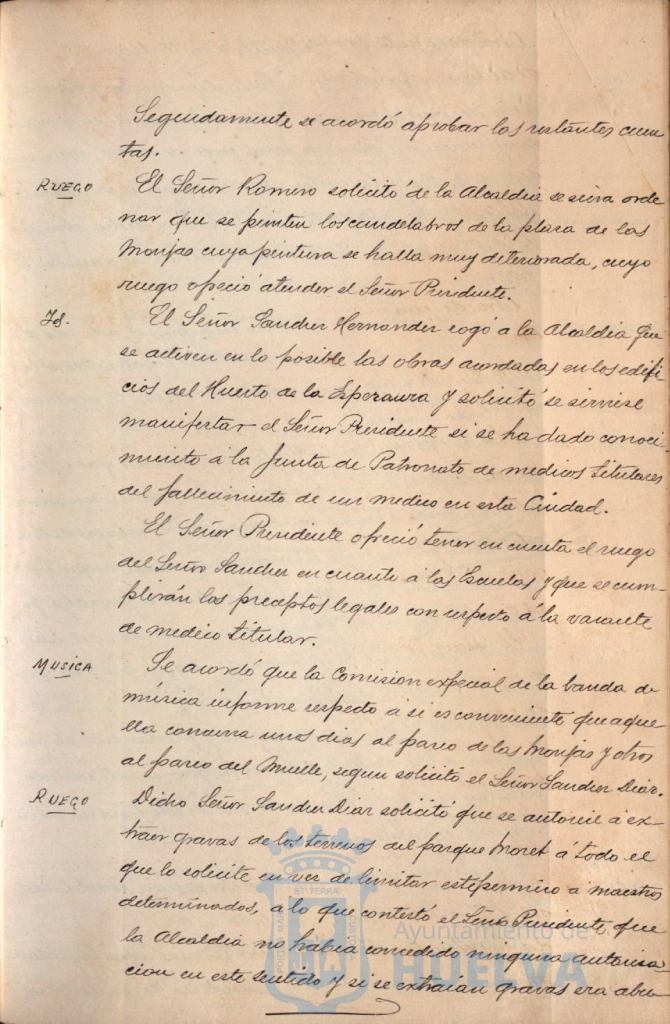 Seguidamente se acordó aprobar las restantes cuen
tas.
RUEGO
El Señor Romero solicitó de la Alcaldia se sirva orde
nar que se pinten los candelabros de la plaza de las
Monjas cuya pintura se halla muy deteriorada, cuyo
ruego ofreció atender el Señor Presidente.
Id.
El Señor Sanchez Hernandez rogó a la Alcaldia que
se activen en lo posible las obras acordadas en los edifi
cios del Huerto de la Esperanza y solicitó se sirviese
manifestar el Señor Presidente si se ha dado conoci-
miento á la Junta de Patronato de medicos titulares
del fallecimiento de un medico en esta Ciudad.
El Señor Presidente ofreció tener en cuenta el ruego
del Señor Sanchez en cuanto á las Escuelas y que se cum-
plirán los preceptos legales con respecto á la vacante
de medico titular.
MUSICA
Se acordó que la Comision especial de la banda de
música informe respecto a si es conveniente que aque
lla concurra unos dias al paseo de las Monjas y otros
al paseo del Muelle, segun solicitó el Señor Sanchez Diaz.
RUEGO
Dicho Señor Sanchez Diaz solicitó que se autorice á ex-
traer gravas de los terrenos del parque Moret á todo el
que lo solicite en vez de limitar este permiso a maestros
determinados, a lo que contestó el Señor Presidente que
la Alcaldia no habia concedido ninguna autoriza
cion en este sentido y si se extraian gravas era abu
Ayuntamiento de
HUELVA